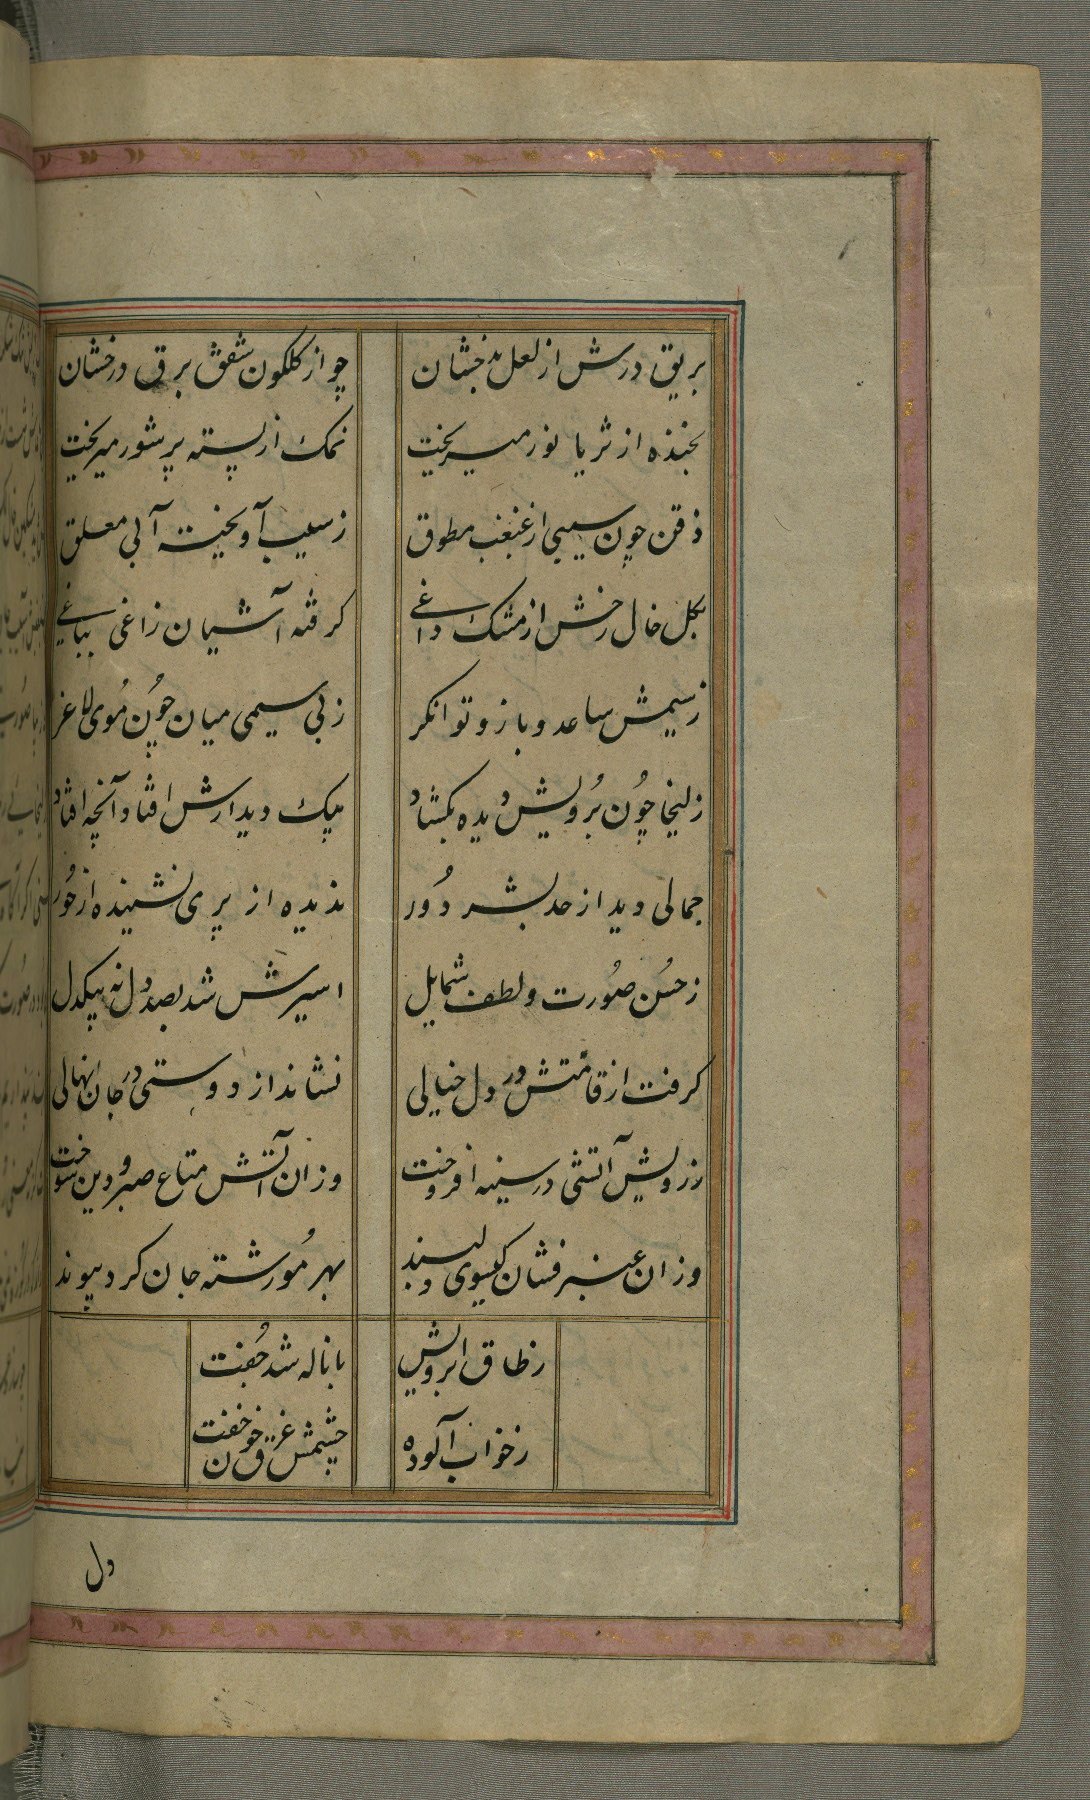 بریق درش از لعل بدخشان چو از کلکون شفق برق درخشان
بخنده از ثریا نور میریخت نمک از پسته پر شور میریخت
ذقن چون سیبی از غبغب مطوق ز سیب آویخته آبی معلق
بکل خال رخش از مشک داغی کرفته آشیان زاغی بباغی
ز سیمش ساعد و بازو توانکر ز بی سیمی میان چون موی لاغر
زلیخا چون برویش دیده بکشاد بیک دیدارش افتاد آنچه افتاد
جمالی دید از حد بشر دور ندیده از پری نشنیده از حور
ز حسن صورت و لطف شمایل اسیرش شد بصد دل نه بیکدل
کرفت از قامتش در دل خیالی نشاند از دوستی در جان نهالی
ز رویش آتشی در سینه افروخت وزان آتش متاع صبر و دین سوخت
وزان عنبر فشان کیسوی دلبند بهر مو رشته جان کرد پیوند
ز طاق ابرویش با ناله شد جفت
ز خواب آلوده چشمش غرق خون خفت
دل